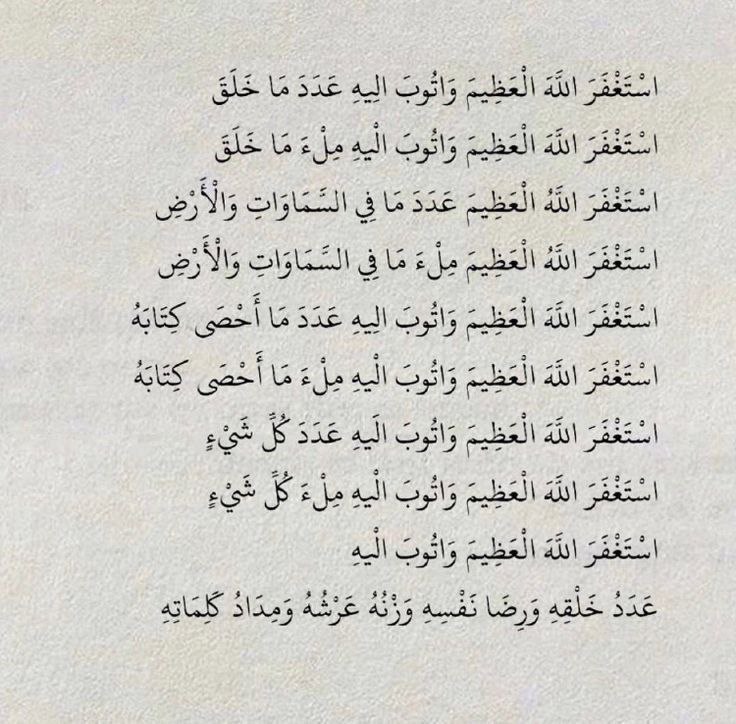 اسْتَغْفَرَ اللَّهَ الْعَظِيمَ وَاتُوبَ الِيهِ عَدَدَ مَا خَلَقَ
اسْتَغْفَرَ اللَّهَ الْعَظِيمَ وَاتُوبَ الْيهِ مِلْءَ مَا خَلَقَ
اسْتَغْفَرَ اللَّهُ الْعَظِيمَ عَدَدَ مَا فِي السَّمَاوَاتِ وَالْأَرْضِ
اسْتَغْفَرَ اللَّهُ الْعَظِيمَ مِلْءَ مَا فِي السَّمَاوَاتِ وَالْأَرْضِ
اسْتَغْفَرَ اللَّهَ الْعَظِيمَ وَاتُوبَ الِيهِ عَدَدَ مَا أَحْصَى كِتَابَهُ
اسْتَغْفَرَ اللَّهَ الْعَظِيمَ وَاتُوبَ الْيهِ مِلْءَ مَا أَحْصَى كِتَابَهُ
اسْتَغْفَرَ اللَّهَ الْعَظِيمَ وَاتُوبَ الَيهِ عَدَدَ كُلِّ شَيْءٍ
اسْتَغْفَرَ اللَّهَ الْعَظِيمَ وَاتُوبَ الْيهِ مِلْءَ كُلِّ شَيْءٍ
اسْتَغْفَرَ اللَّهَ الْعَظِيمَ وَاتُوبَ الْيهِ
عَدَدُ خَلْقِهِ وَرِضَا نَفْسِهِ وَزْنُهُ عَرْشُهُ وَمِدَادُ كَلِمَاتِهِ